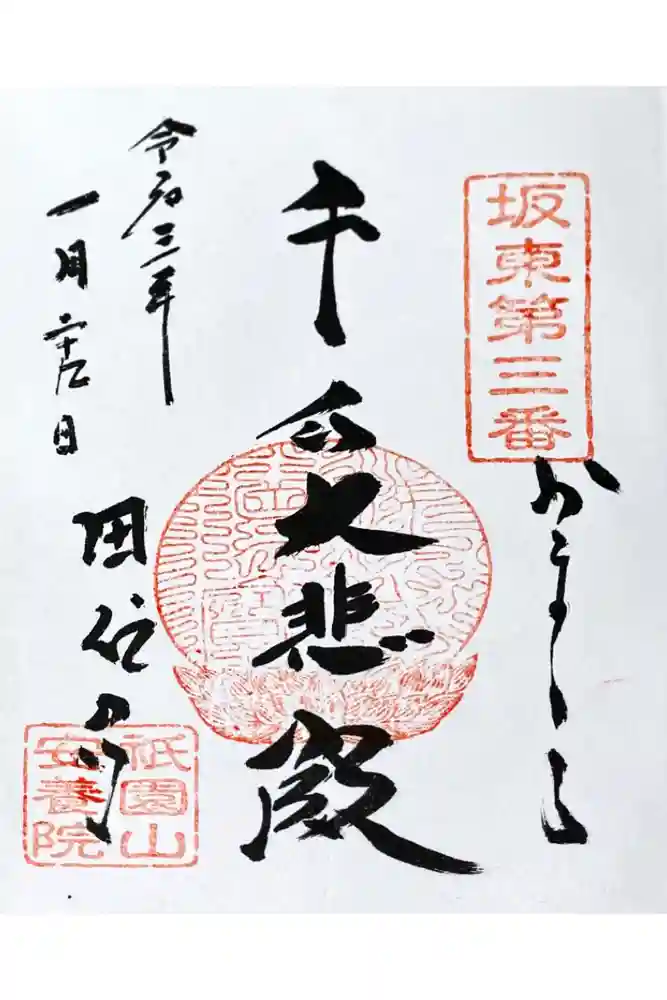 坂東第三番
かまくら
千手大悲殿
田代寺
令和三年
一月二十九日
祇園山
安養院